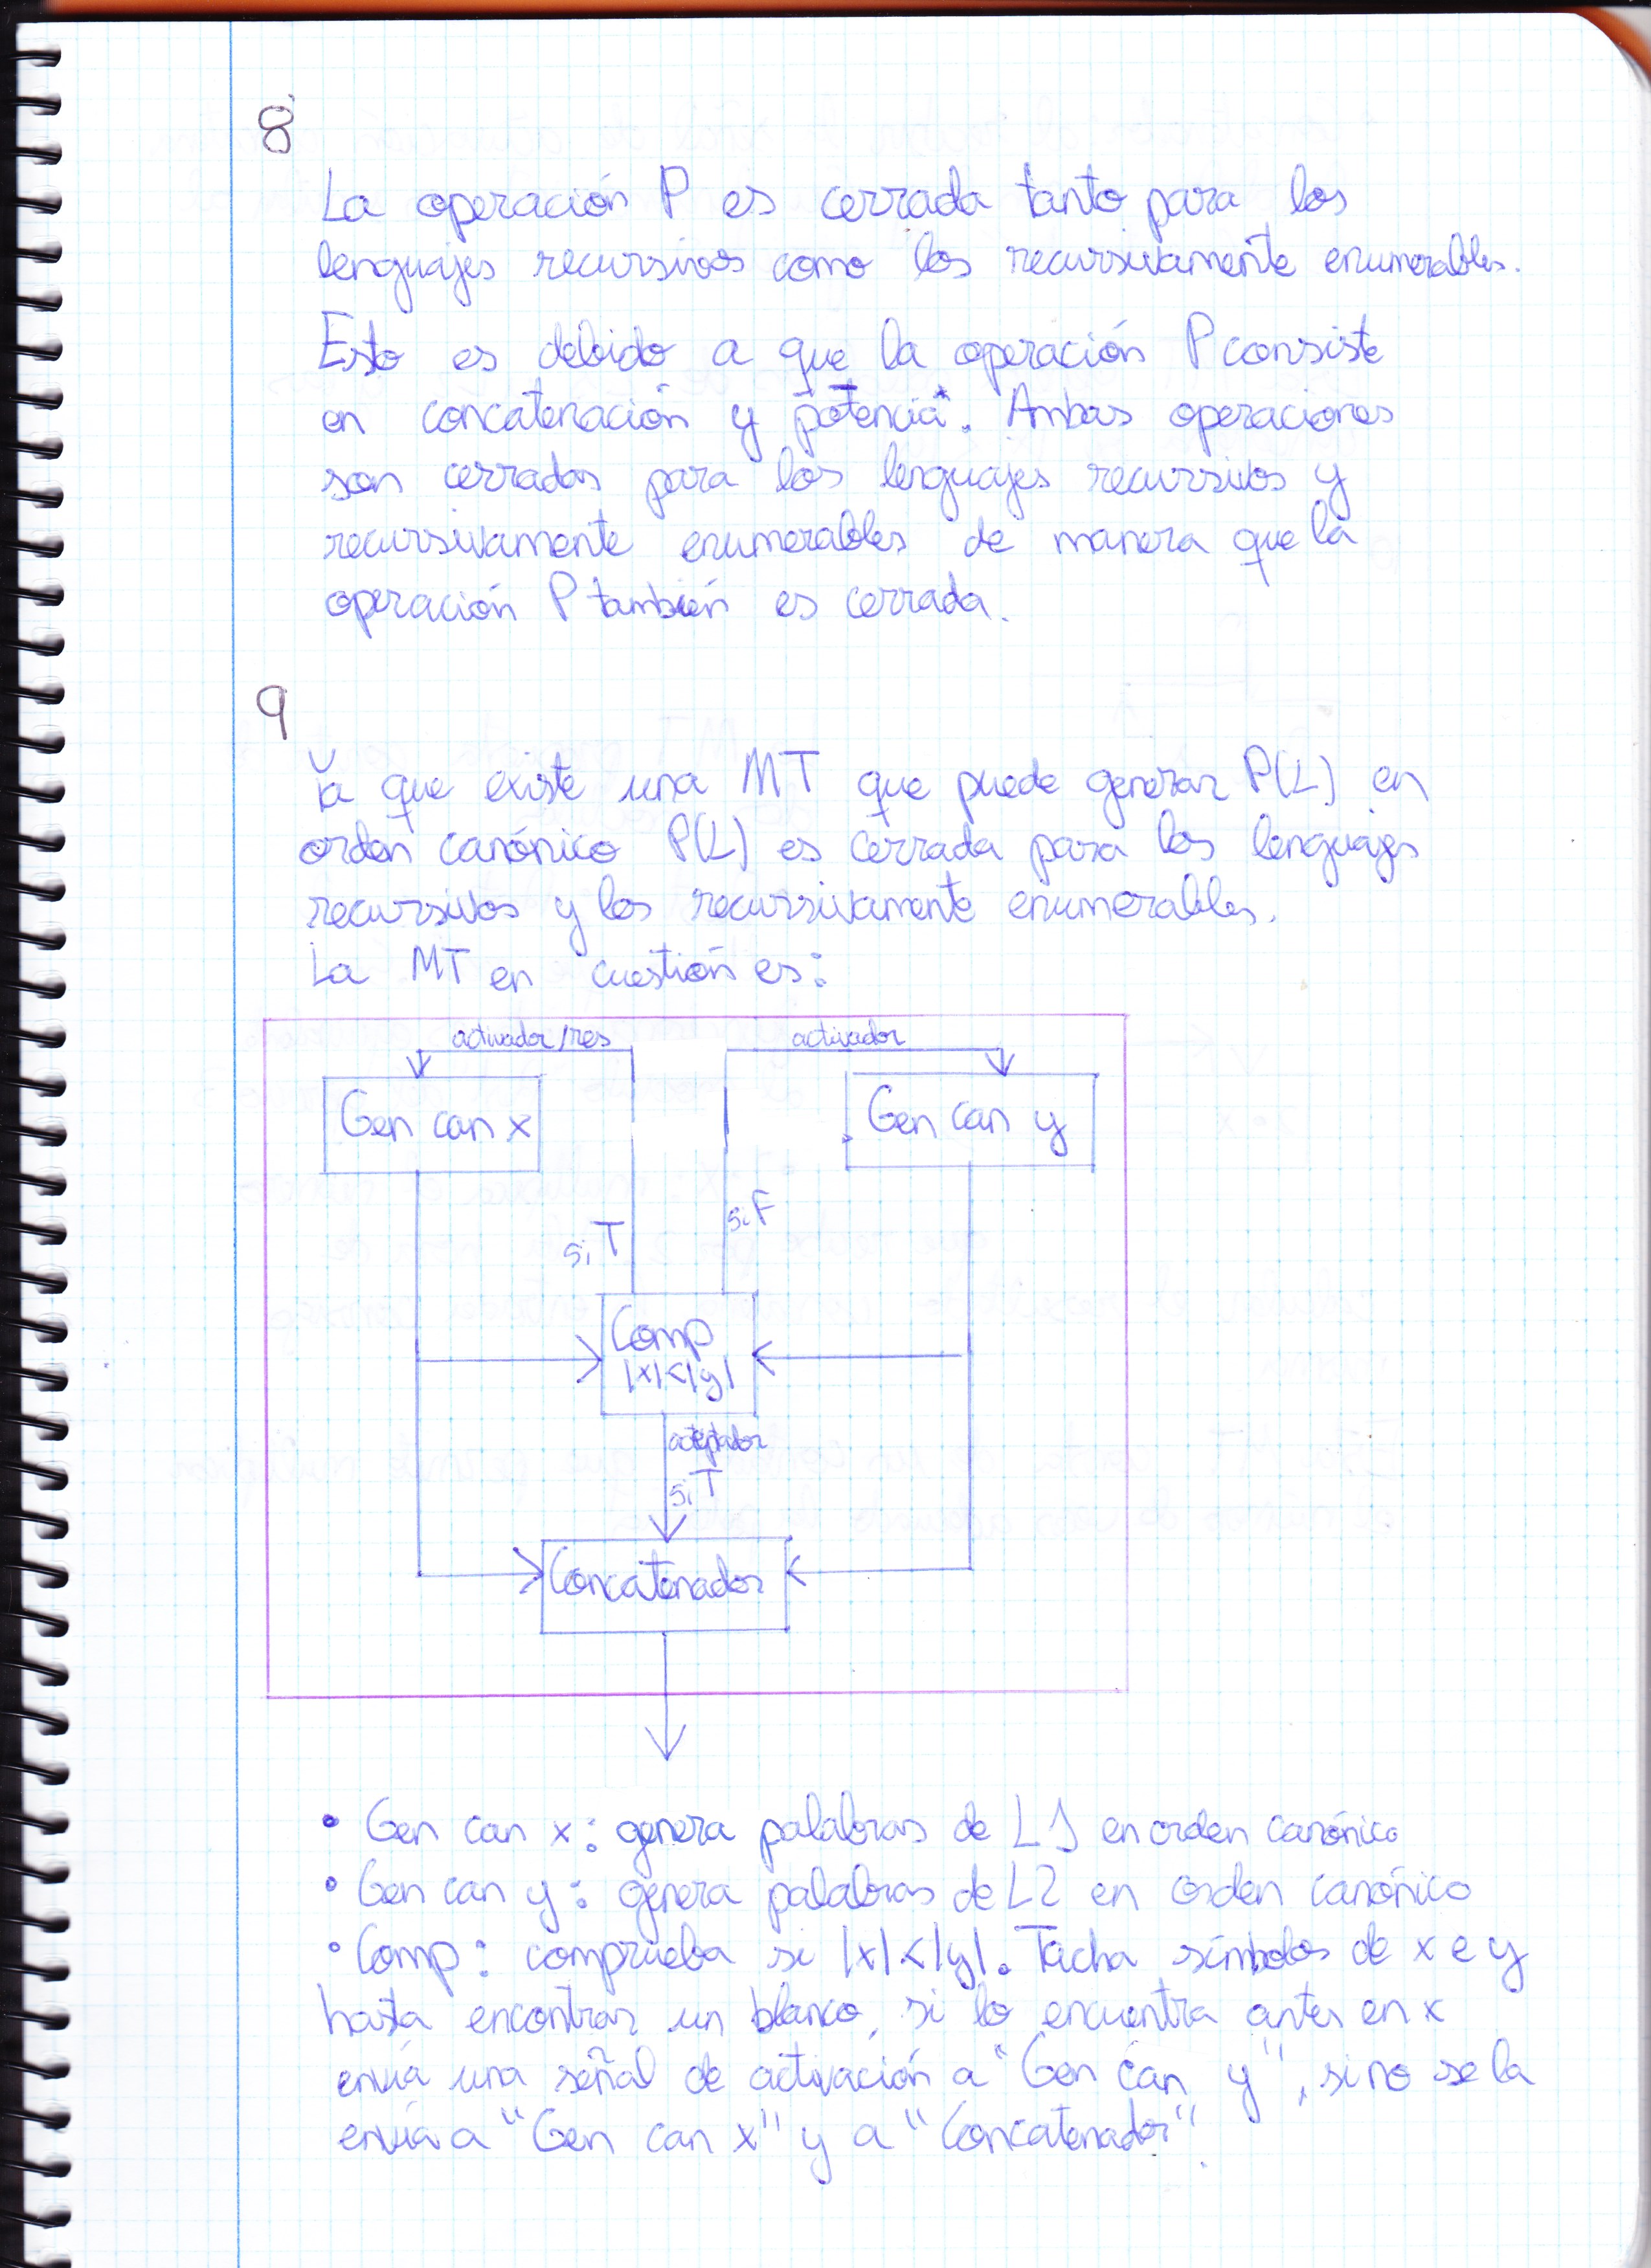 8
La operación P es cerrada tanto para los
lenguajes recursivos como los recursivamente enumerables.
Esto es debido a que la operación P consiste
en concatenación y "potencia". Ambas operaciones
son cerradas para los lenguajes recursivos y
recursivamente enumerables de manera que la
operación P también es cerrada.
9
Ya que existe una MT que puede generar P(L) en
orden canónico P(L) es cerrada para los lenguajes
recursivos y los recursivamente enumerables.
La MT en cuestión es:
activador/res activador
Gen can x Gen can y
si T si F
Comp
|x|<|y|
aceptador
si T
Concatenador
• Gen can x: genera palabras de L1 en orden canónico
• Gen can y: genera palabras de L2 en orden canónico
• Comp: comprueba si |x|<|y|. Tacha símbolos de x e y
hasta encontrar un blanco, si lo encuentra antes en x
envía una señal de activación a "Gen can y", si no se la
envía a "Gen can x" y a "Concatenador".